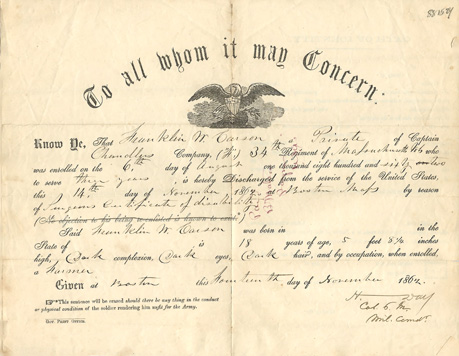 To all whom it may Concern:
Know Ye, That Franklin W. Carson a Private of Captain
Chandlers Company, 34th Regiment of Massachusetts who
was enrolled on the 6th day of August one thousand eight hundred and sixty two
to serve three years is hereby Discharged from the service of the United States,
this 14th day of November, 1862, at Boston Mass by reason
of Surgeons Certificate of disability
(No objection to his being re-enlisted is known to exist.)
Said Franklin W. Carson was born in in the
State of is 18 years of age, 5 feet 8½ inches
high, Dark complexion, Dark eyes, Dark hair, and by occupation, when enrolled,
a Farmer
Given at Boston this Fourteenth day of November 1862.
This sentence will be erased should there be any thing in the conduct
or physical condition of the soldier rendering him unfit for the Army.
H. Day
Col 6.
Mil. Comdr.